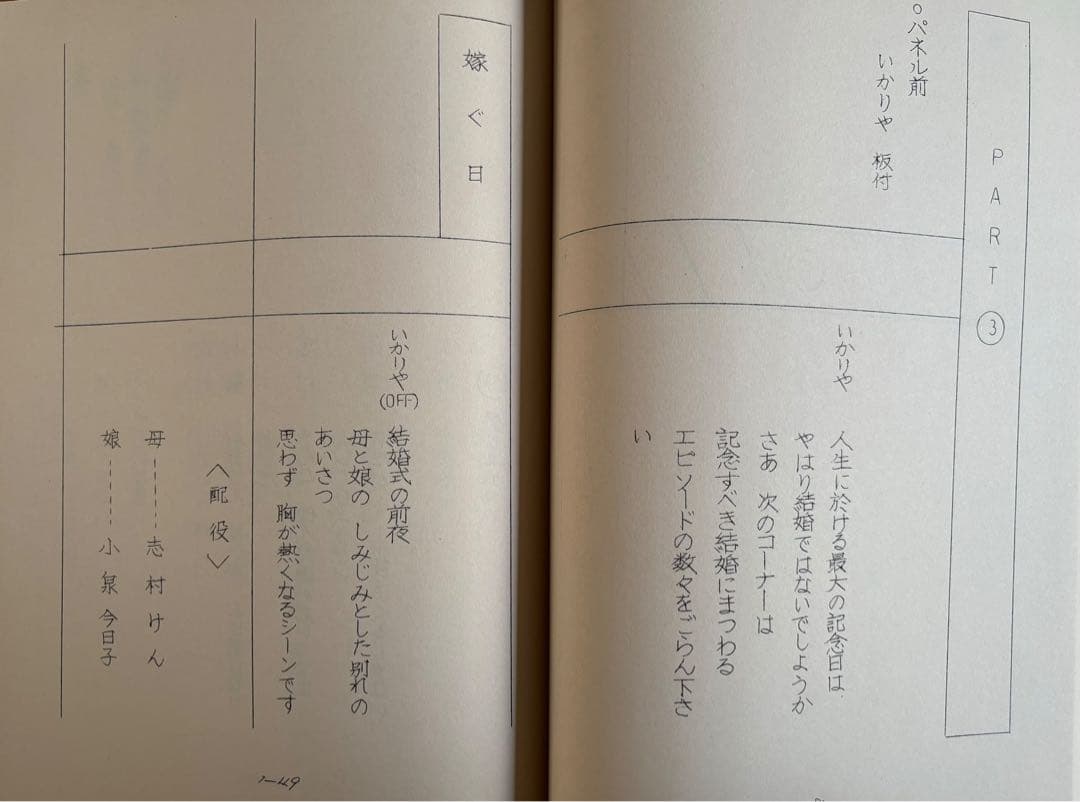 PART③
○パネル前
いかりや 板付
いかりや
人生に於ける最大の記念日は
やはり結婚ではないでしようか
さあ 次のコーナーは
記念すべき結婚にまつわる
エピソードの数々をごらん下さ
い
嫁ぐ日
いかりや(OFF)
結婚式の前夜
母と娘の しみじみとした別れの
あいさつ
思わず 胸が熱くなるシーンです
〈配役〉
母------志村けん
娘------小泉今日子
1-49